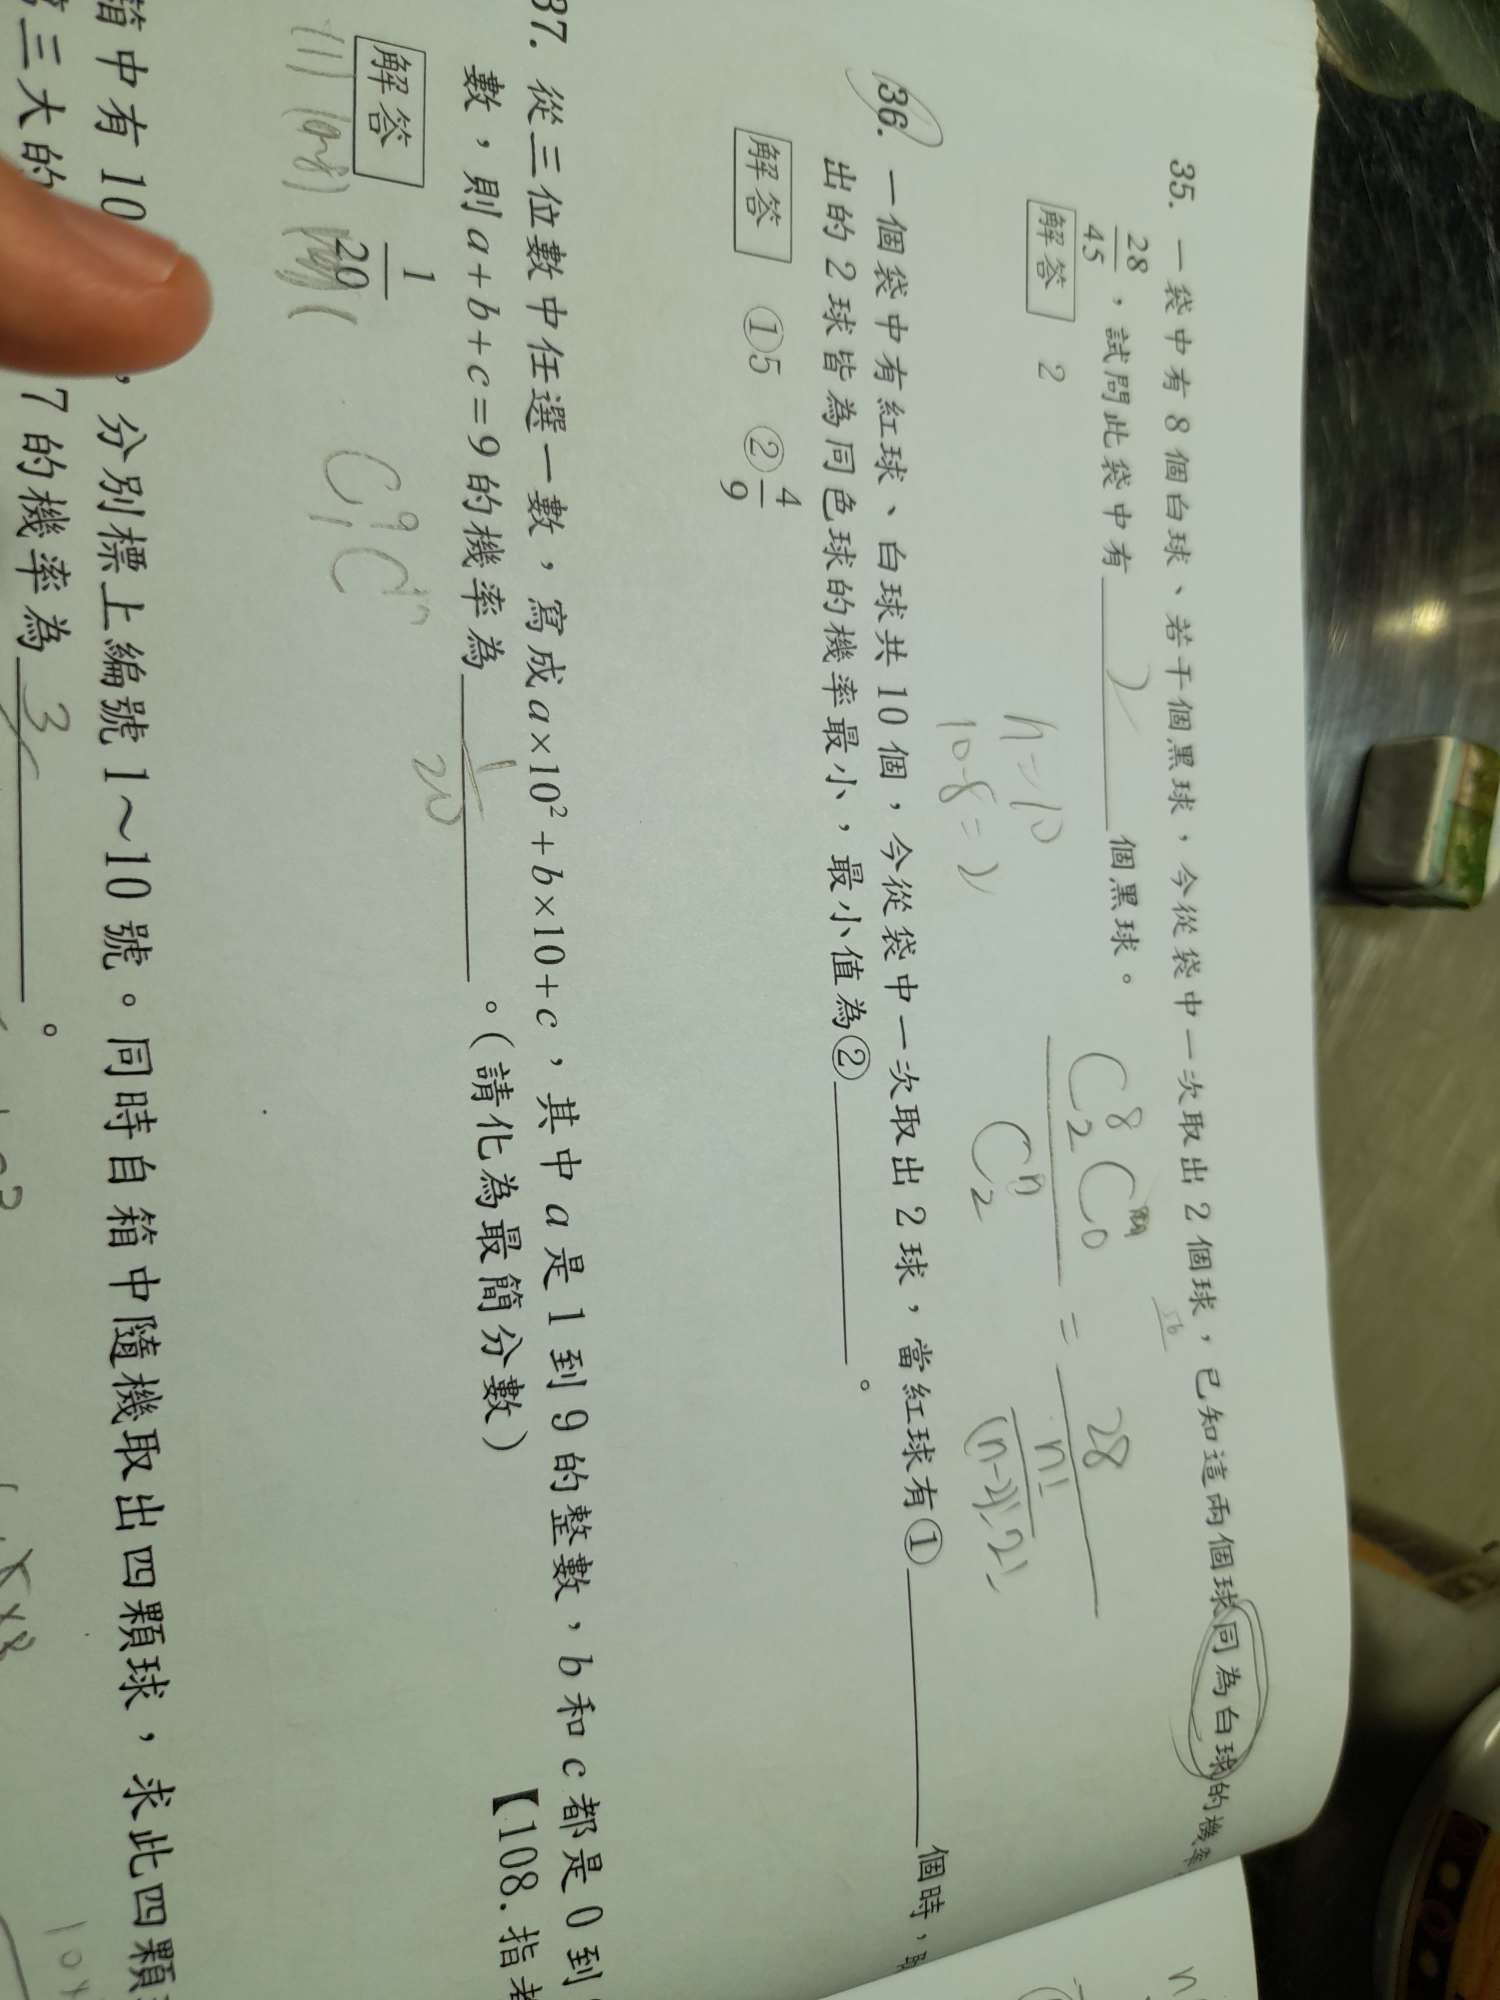 35. 一袋中有 8 個白球、若干個黑球，今從袋中一次取出 2 個球，已知這兩個球同為白球的機率
28/45，試問此袋中有 2 個黑球。
解答 2
n=10
10-8=2
C⁸₂C₀
Cⁿ₂
= 28
n!
(n-2)!2!
36. 一個袋中有紅球、白球共 10 個，今從袋中一次取出 2 球，當紅球有①個時，
出的 2 球皆為同色球的機率最小，最小值為②。
解答 ①5 ②4/9
37. 從三位數中任選一數，寫成 a×10²+b×10+c，其中 a 是 1 到 9 的整數，b 和 c 都是 0 到
數，則 a+b+c=9 的機率為 1/20。(請化為最簡分數)【108.指考
解答 1/20
C⁹₁C
箱中有 10，分別標上編號 1～10 號。同時自箱中隨機取出四顆球，求此四顆
三大的 7 的機率為 3。